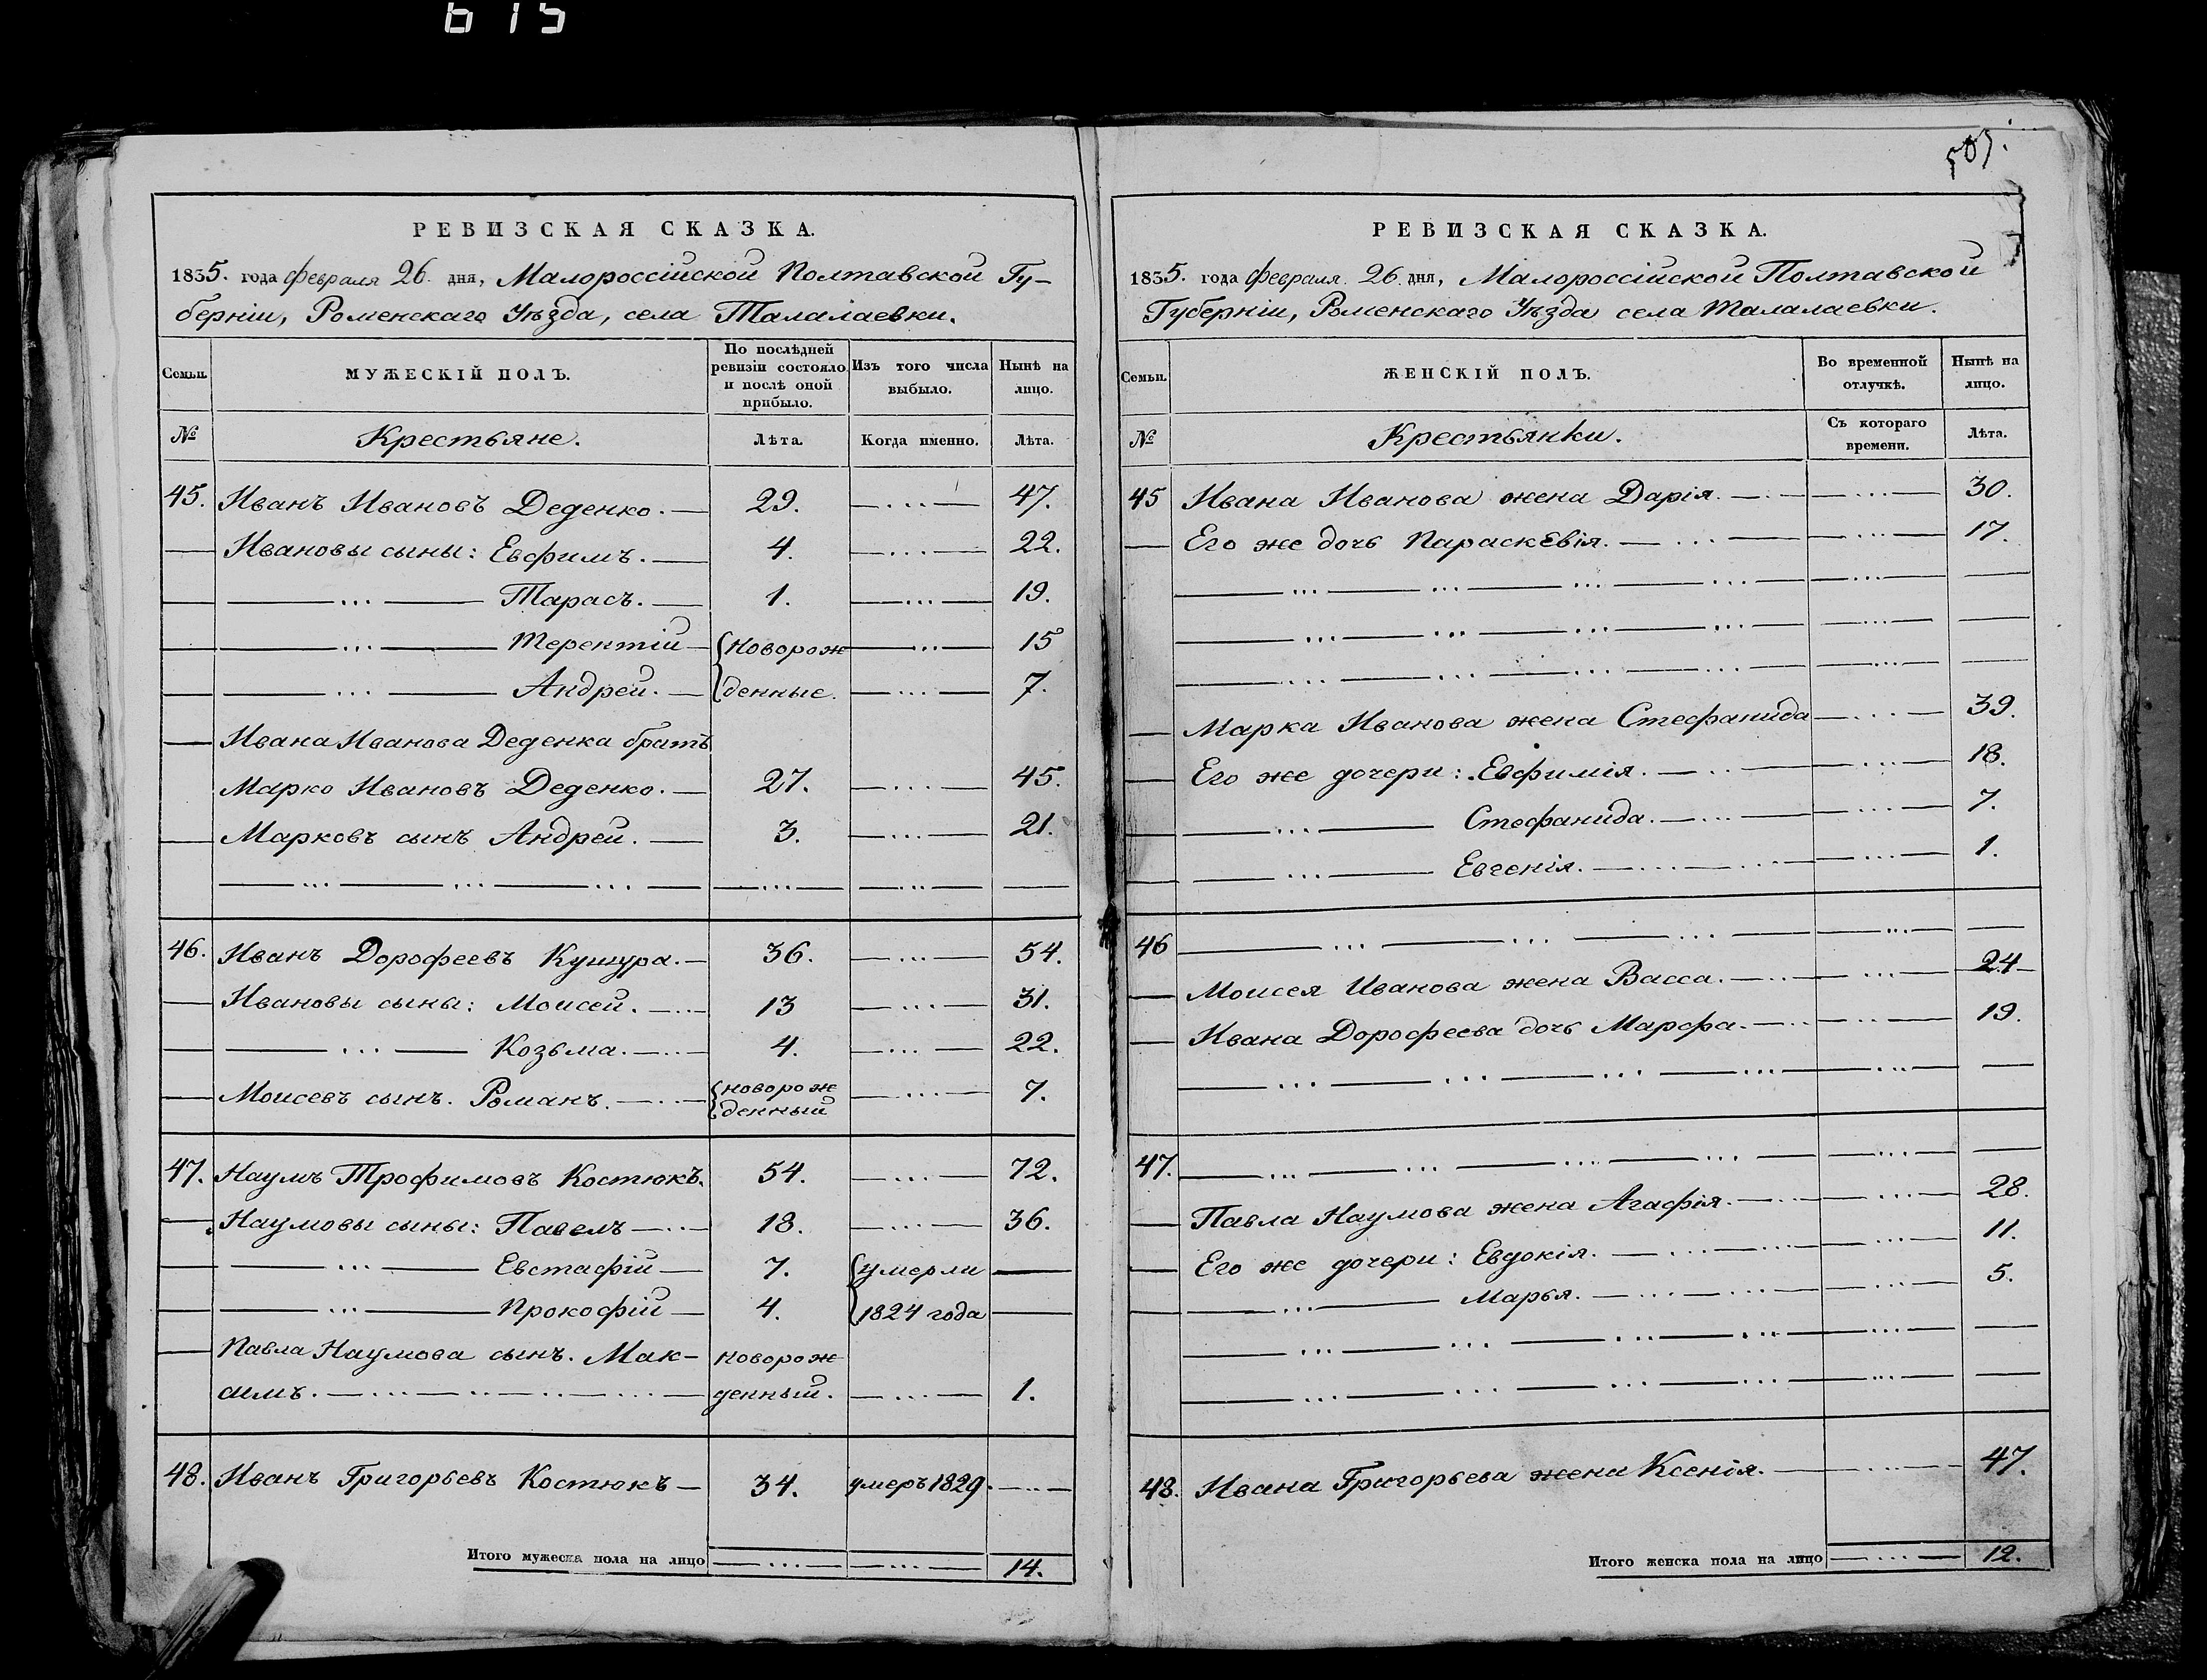 615
РЕВИЗСКАЯ СКАЗКА.
1835. года февраля 26. дня, Малороссійской Полтавской Гу-
берніи, Роменскаго Уѣзда, села Талалаевки.
Семьи. МУЖЕСКІЙ ПОЛЪ. По послѣдней ревизіи состояло и послѣ оной прибыло. Изъ того числа выбыло. Нынѣ на лицо.
№ Крестьяне. Лѣта. Когда именно. Лѣта.
45. Иванъ Ивановъ Деденко. 29. 47.
Ивановы сыны: Евфимъ. 4. 22.
Тарасъ. 1. 19.
Терентій Новорож 15
Андрей. денные. 7.
Ивана Иванова Деденка братъ
Марко Ивановъ Деденко. 27. 45.
Марковъ сынъ Андрей. 3. 21.
46. Иванъ Дорофеевъ 36. 54.
Ивановы сыны: Моисей. 13 31.
Козьма. 4. 22.
Моисевъ сынъ. Романъ. новорож денный 7.
47. Наумъ Трофимовъ Костюкъ. 54. 72.
Наумовы сыны: Павелъ 18. 36.
Евстафій 7. умерли
Прокофій 4. 1824 года
Павла Наумова сынъ. Мак- новорож
симъ. денный. 1.
48. Иванъ Григорьевъ Костюкъ 34. умеръ 1829.
Итого мужеска пола на лицо 14.
РЕВИЗСКАЯ СКАЗКА.
1835. года февраля 26. дня, Малороссійской Полтавской
Губерніи, Роменскаго Уѣзда села Талалаевки.
Семьи. ЖЕНСКІЙ ПОЛЪ. Во временной отлучкѣ. Нынѣ на лицо.
№ Крестьянки. Съ котораго времени. Лѣта.
45 Ивана Иванова жена Дарія. 30.
Его же дочь Параскевія. 17.
Марка Иванова жена Стефанида 39.
Его же дочери: Евфимія. 18.
Стефанида. 7.
Евгенія. 1.
46
Моисея Иванова жена Васса. 24
Ивана Дорофеева дочь Марфа. 19.
47.
Павла Наумова жена Агафія. 28.
Его же дочери: Евдокія. 11.
Марья. 5.
48. Ивана Григорьева жена Ксенія. 47.
Итого женска пола на лицо 12.